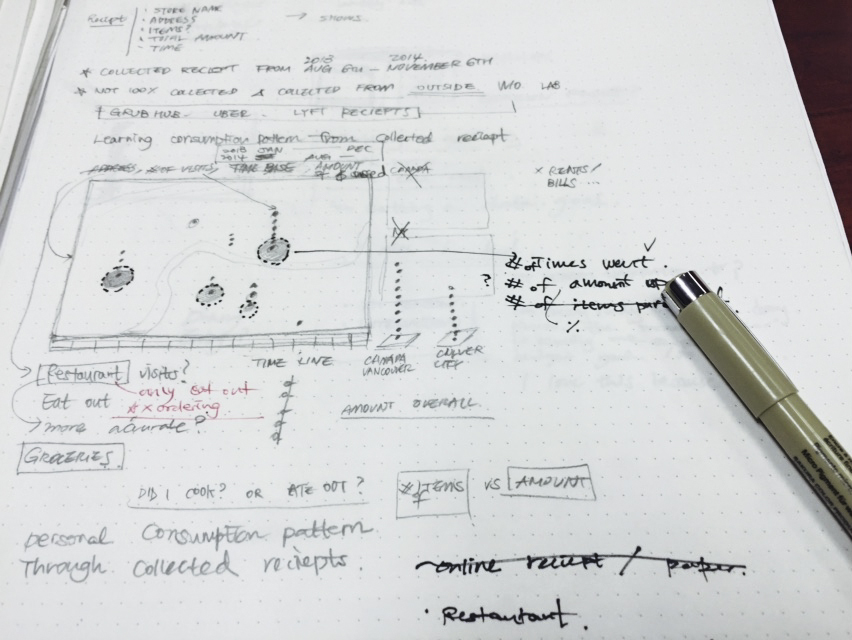 Reciept
· STORE NAME
· ADDRESS
· ITEMS?
· TOTAL AMOUNT
· TIME
→
* COLLECTED RECIEPT FROM 2013 AUG 6TH – 2014. NOVEMBER 6TH
* NOT 100% COLLECTED & COLLECTED FROM OUTSIDE W/O LAB
GRUBHUB. UBER. LYFT RECIEPTS
Learning consumption pattern from collected reciept
2013 JAN — DEC
2014 AUG —
ADDRESS, # OF VISITS, TIME BASE, AMOUNT
CANADA
× RENTS/
BILLS ...
# of Times went.
? # of amount
# of items
%
TIME LINE
CANADA
VANCOUVER
CULVER
CITY
Restaurant visits?
only eat out
Eat out
* × ordering
more accurate?
AMOUNT OVERALL
GROCERIES.
DID I COOK? OR ATE OUT?
# OF ITEMS VS AMOUNT
personal consumption pattern
Through collected reciepts.
online reciept / paper.
· Restaurant.